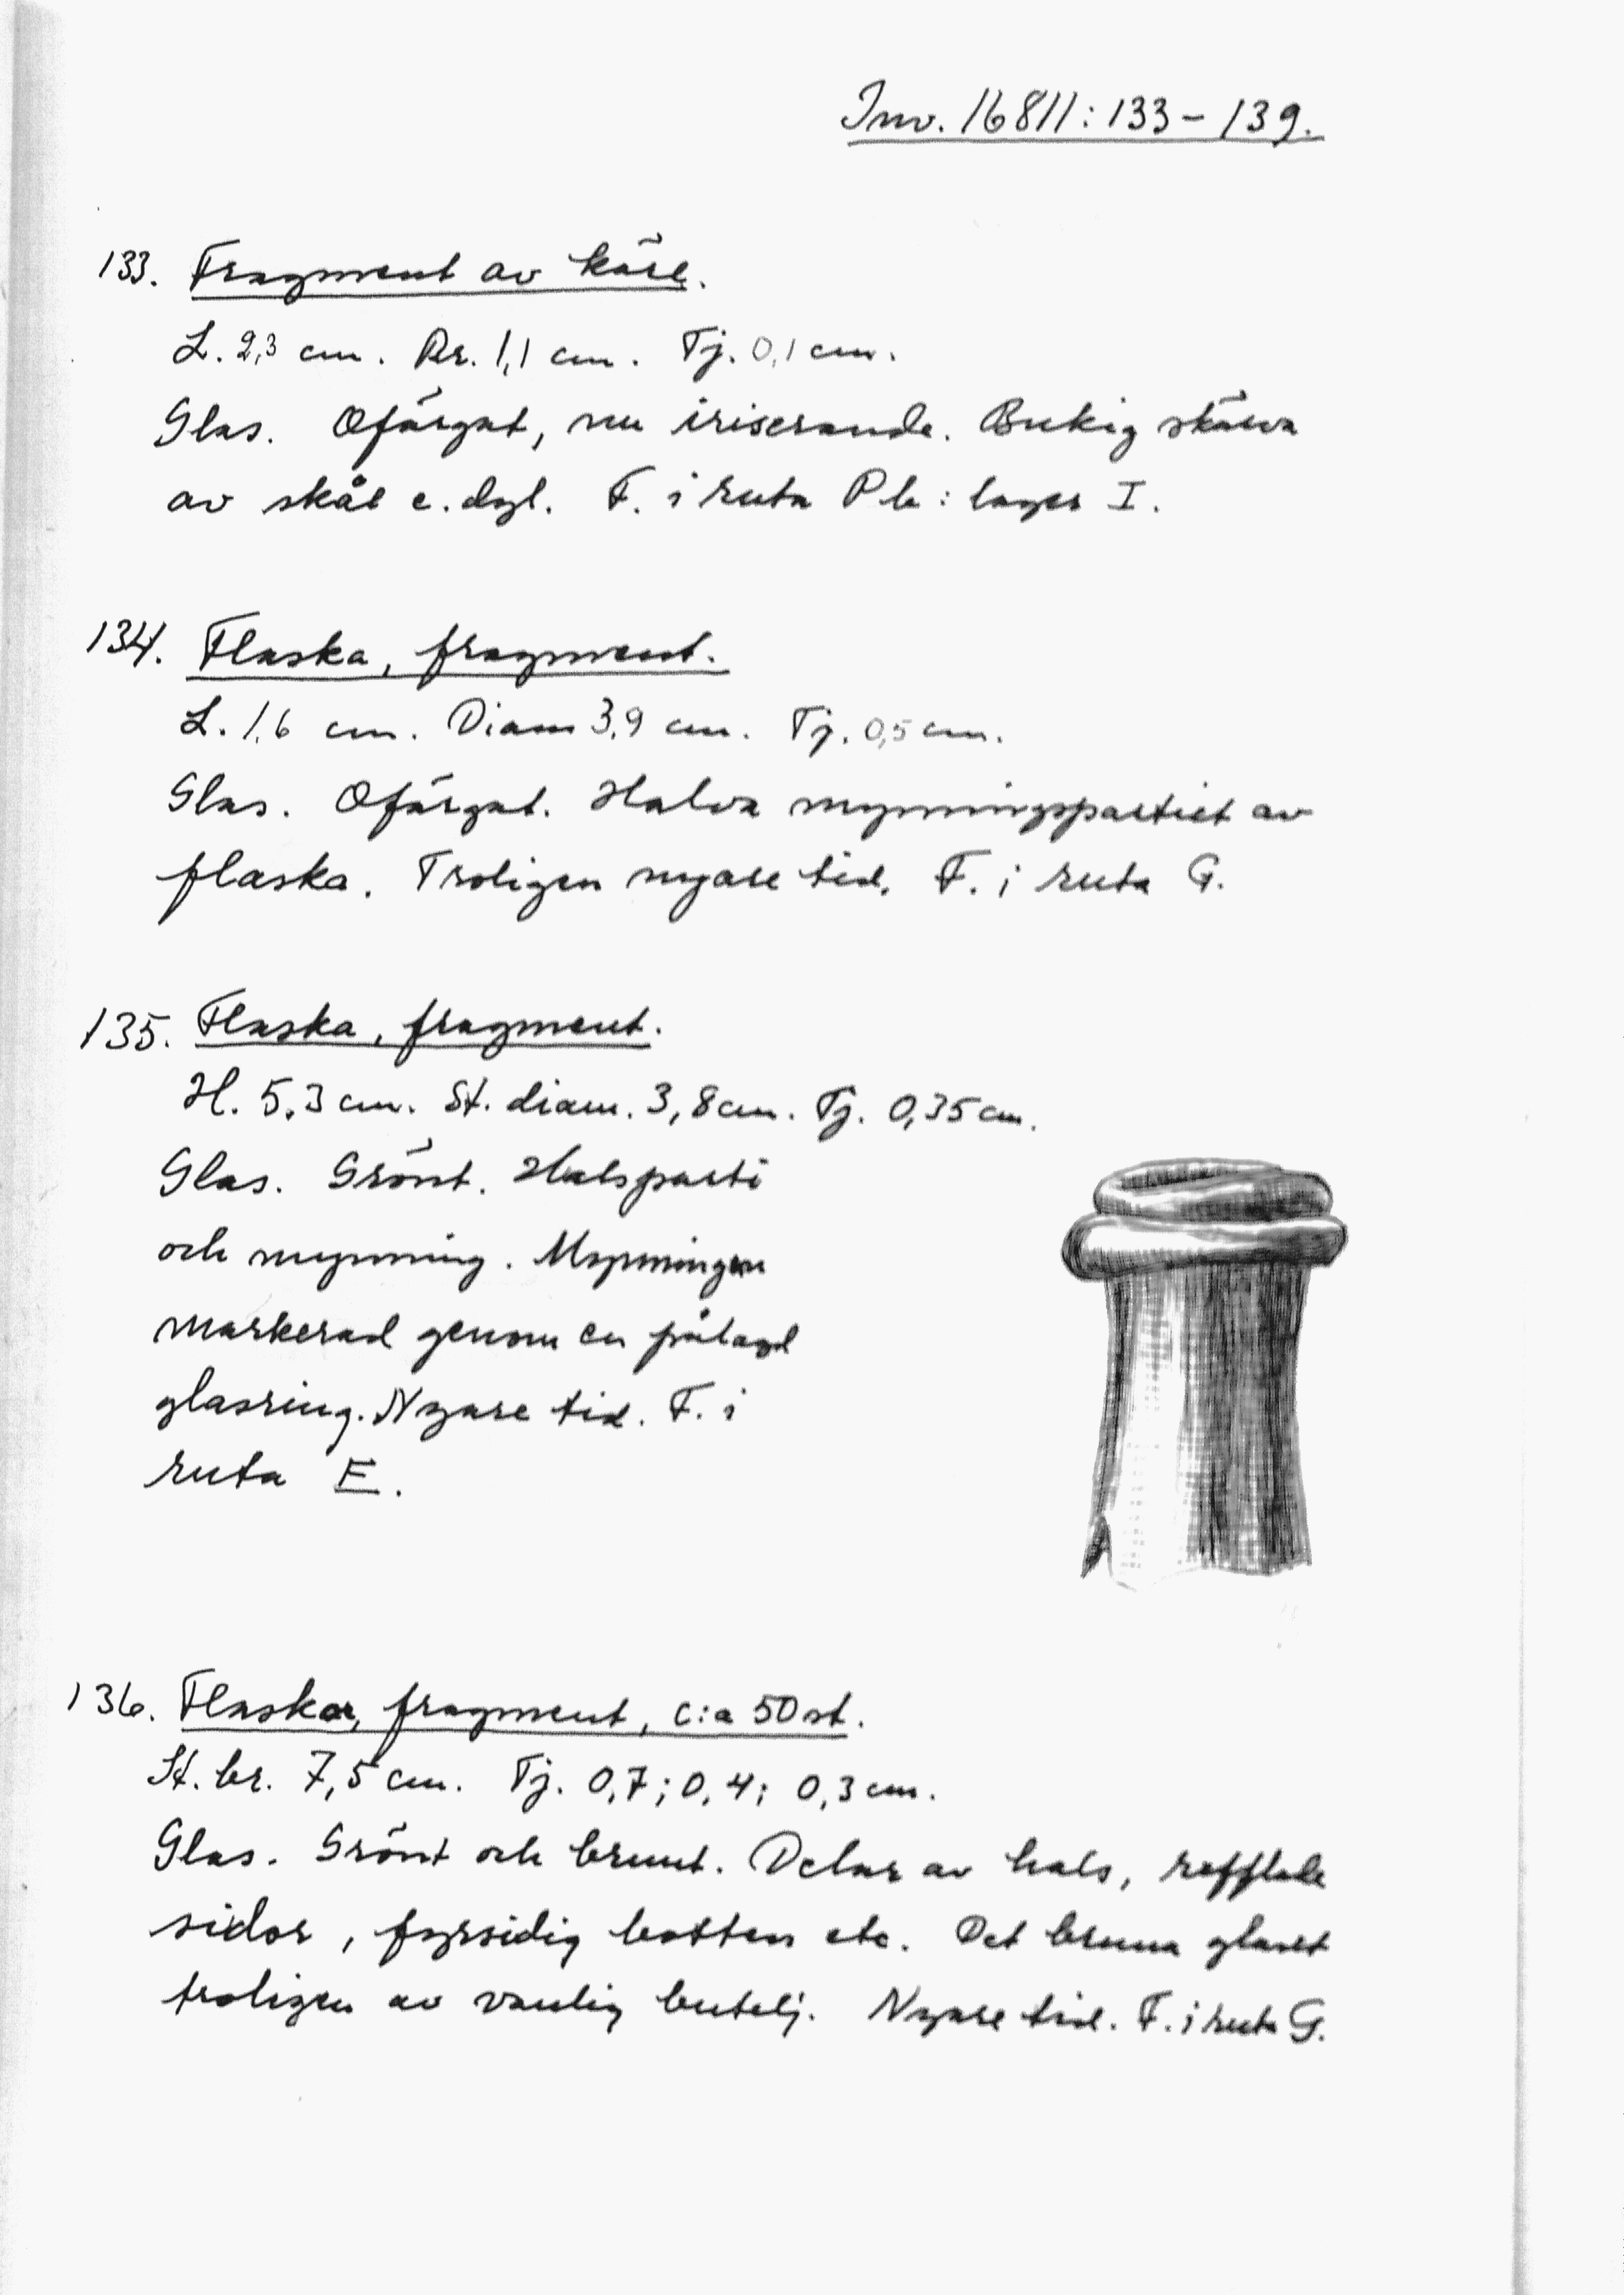 Inv. 16811:133–139.
133. Fragment av kärl.
L. 2,3 cm. Br. 1,1 cm. Tj. 0,1 cm.
Glas. Ofärgat, nu iriserande. Bukig skärva
av skål e. dyl. F. i ruta Pb: lager I.
134. Flaska, fragment.
L. 1,6 cm. Diam 3,9 cm. Tj. 0,5 cm.
Glas. Ofärgat. Halva mynningspartiet av
flaska. Troligen nyare tid. F. i ruta G.
135. Flaska, fragment.
H. 5,3 cm. St. diam. 3,8 cm. Tj. 0,35 cm.
Glas. Grönt. Halsparti
och mynning. Mynningen
markerad genom en pålagd
glasring. Nyare tid. F. i
ruta E.
136. Flaskor, fragment, c:a 50 st.
St. br. 7,5 cm. Tj. 0,7; 0,4; 0,3 cm.
Glas. Grönt och brunt. Delar av hals, refflade
sidor, fyrsidig botten etc. Det bruna glaset
troligen av vanlig butelj. Nyare tid. F. i ruta G.